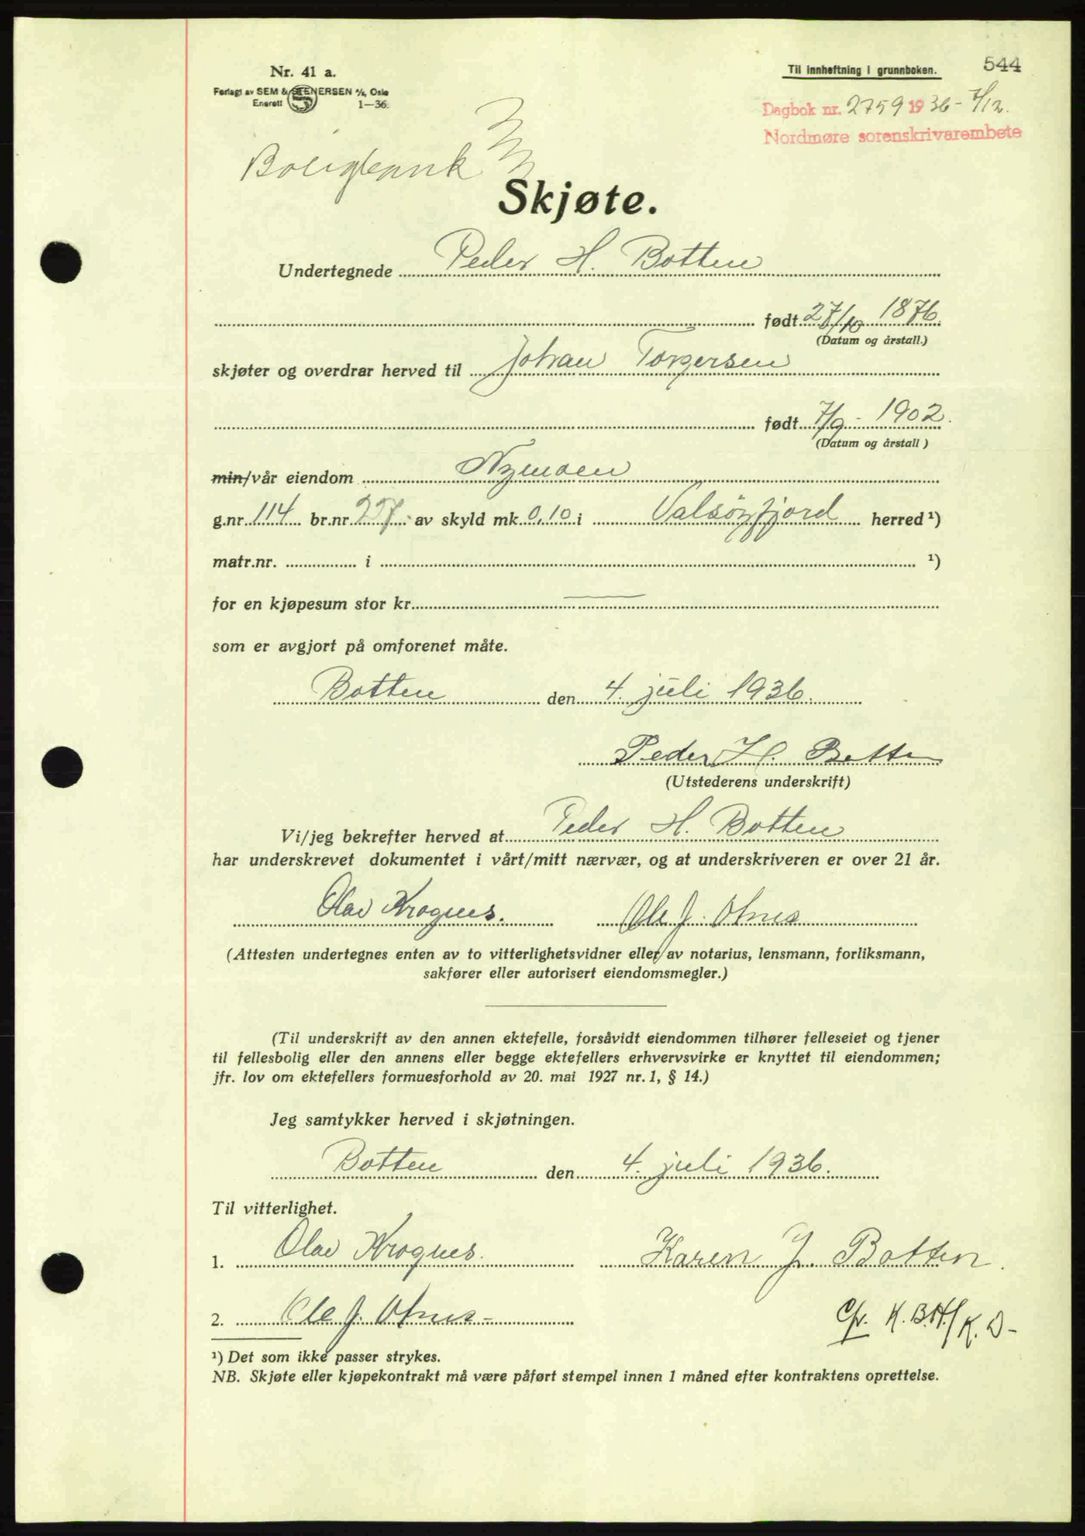 Nr. 41 a.
Forlagt av SEM & STENERSEN A/S, Oslo
Enerett 1—36.
Til innheftning i grunnboken.
544
Dagbok nr. 2759 1936 - 7/12.
Nordmøre sorenskrivarembete
Boligbank
Skjøte.
Undertegnede Peder H. Botten
født 27/10 1876
(Datum og årstall.)
skjøter og overdrar herved til Johan Torgersen
født 7/9 - 1902.
(Datum og årstall )
min/vår eiendom Nymoen
g.nr. 114 br.nr. 257. av skyld mk 0,10 i Valsøyfjord herred ¹)
matr.nr. i ¹)
for en kjøpesum stor kr.
som er avgjort på omforenet måte.
Botten den 4. juli 1936.
Peder H. Botten
(Utstederens underskrift)
Vi/jeg bekrefter herved at Peder H. Botten
har underskrevet dokumentet i vårt/mitt nærvær, og at underskriveren er over 21 år.
Olav Krognes. Ole J. Otnes
(Attesten undertegnes enten av to vitterlighetsvidner eller av notarius, lensmann, forliksmann,
sakfører eller autorisert eiendomsmegler.)
(Til underskrift av den annen ektefelle, forsåvidt eiendommen tilhører felleseiet og tjener
til fellesbolig eller den annens eller begge ektefellers erhvervsvirke er knyttet til eiendommen;
jfr. lov om ektefellers formuesforhold av 20. mai 1927 nr. 1, § 14.)
Jeg samtykker herved i skjøtningen.
Botten den 4. juli 1936.
Til vitterlighet.
1. Olav Krognes. Karen J. Botten.
2. Ole J. Otnes -
Cfr. K. B.H./K. D -
¹) Det som ikke passer strykes.
NB. Skjøte eller kjøpekontrakt må være påført stempel innen 1 måned efter kontraktens oprettelse.